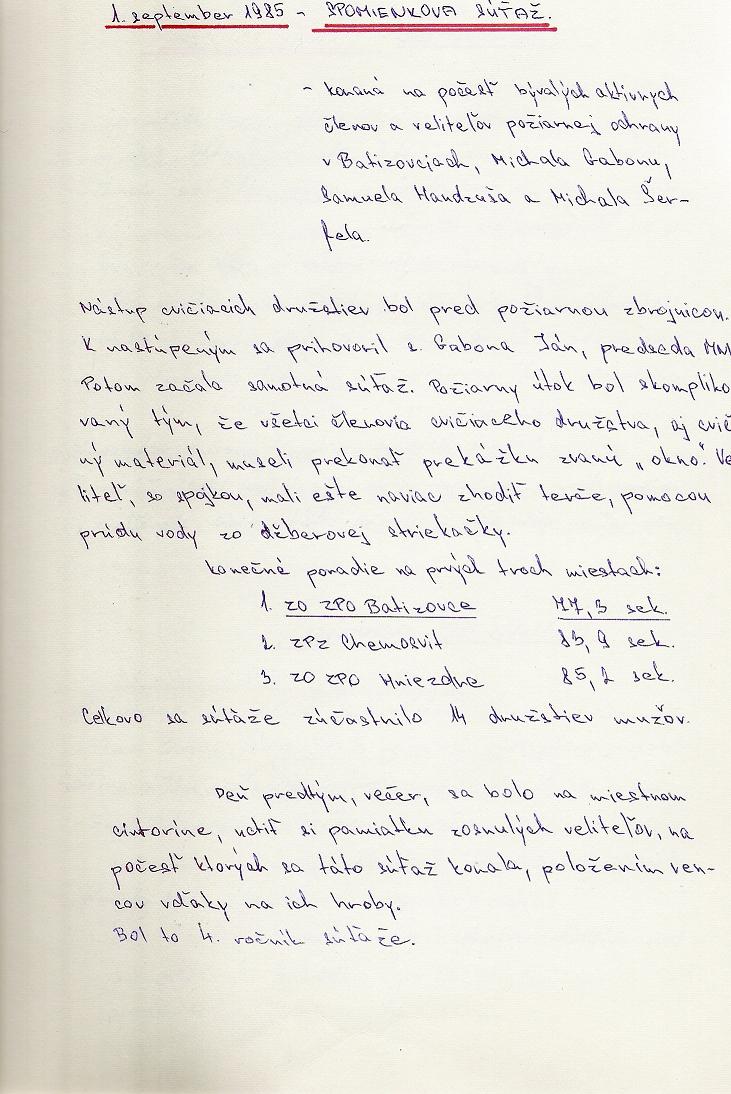 1. september 1985 - SPOMIENKOVÁ SÚŤAŽ.
- konaná na počesť bývalých aktívnych
členov a veliteľov požiarnej ochrany
v Batizovciach, Michala Gabonu,
Samuela Handzuša a Michala Šer-
fela.
Nástup cvičiacich družstiev bol pred požiarnou zbrojnicou.
K nastúpeným sa prihovoril s. Gabona Ján, predseda MN
Potom začala samotná súťaž. Požiarny útok bol skompliko
vaný tým, že všetci členovia cvičiaceho družstva, aj cvič
ný materiál, museli prekonať prekážku zvanú „okno". Ve
liteľ, so spojkou, mali ešte naviac zhodiť terče, pomocou
prúdu vody zo džberovej striekačky.
Konečné poradie na prvých troch miestach:
1. ZO ZPO Batizovce 77,3 sek.
2. ZPZ Chemosvit 83,9 sek.
3. ZO ZPO Hniezdne 85,2 sek.
Celkovo sa súťaže zúčastnilo 14 družstiev mužov.
Deň predtým, večer, sa bolo na miestnom
cintoríne, uctiť si pamiatku zosnulých veliteľov, na
počesť ktorých sa táto súťaž konala, položením ven-
cov vďaky na ich hroby.
Bol to 4. ročník súťaže.